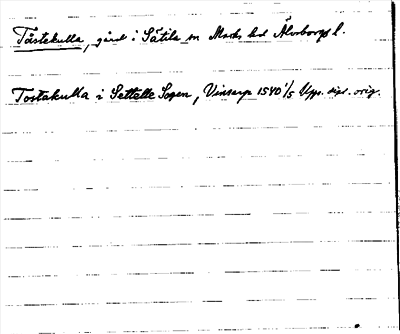 Tåstekulla, gård i Sätila sn Marks hd Älvborgs l.
Tostakulla i Settelle Sogen, Vinsarp 1540 1/5 Upps. dipl. orig.